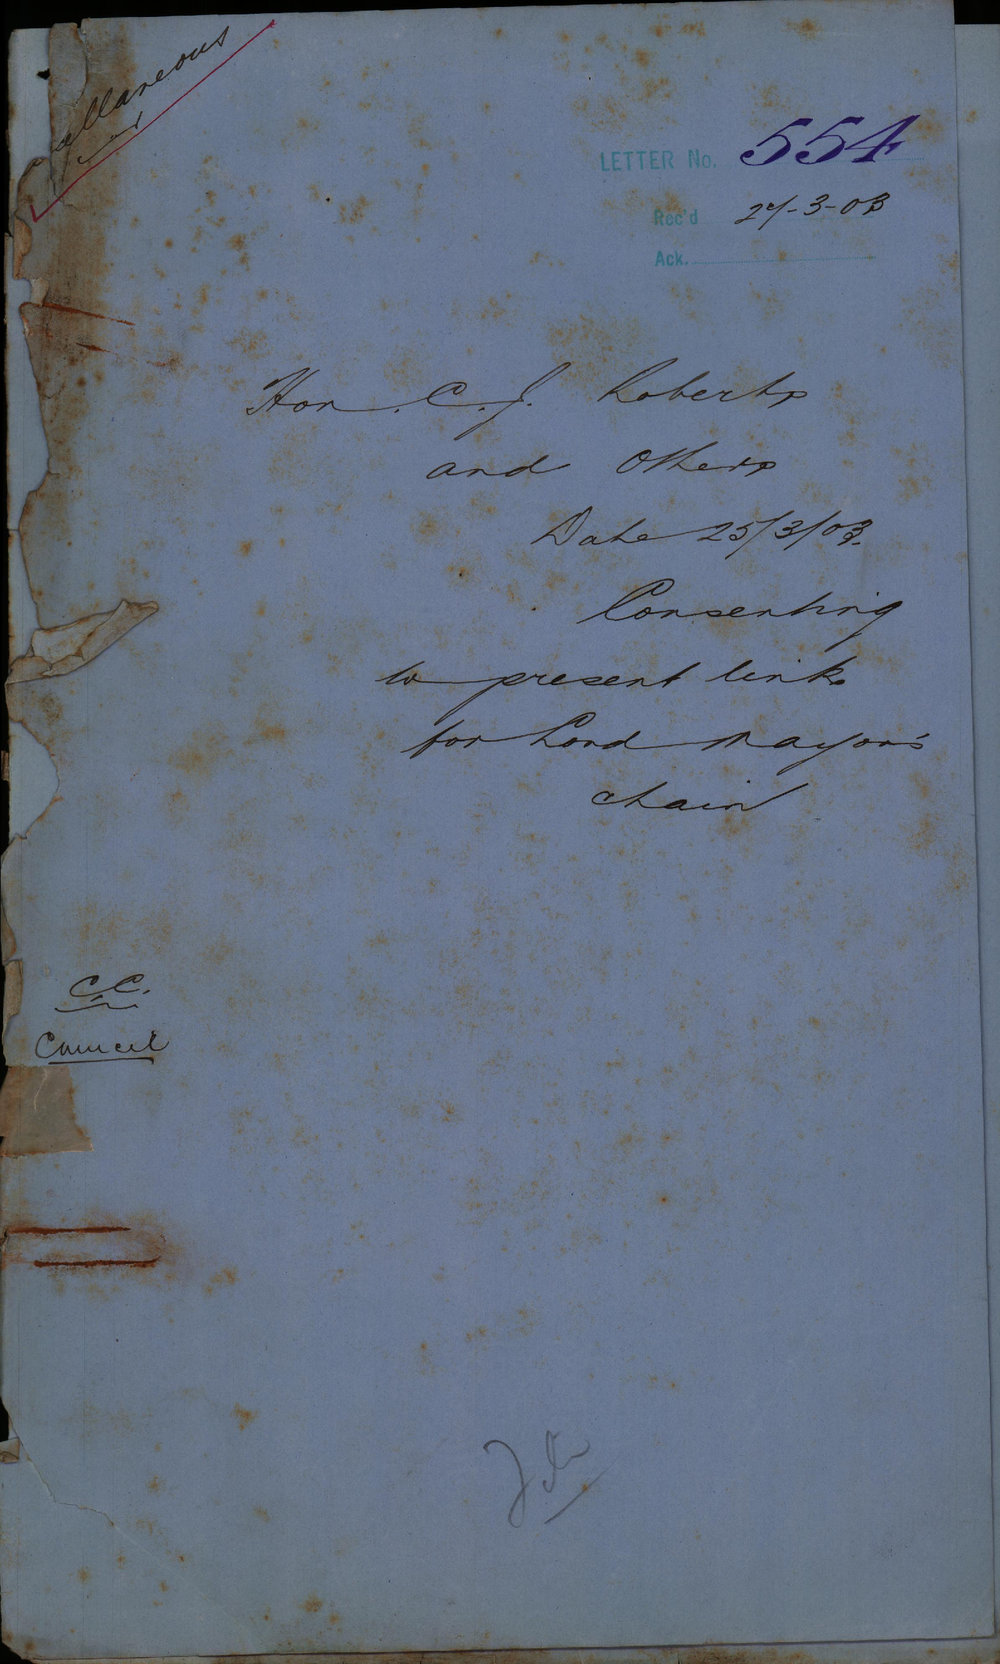 ellaneous
LETTER No. 554
Rec'd 27-3-03
Ack.
Hon. C. J. Roberts
and Others
Date 25/3/03.
Consenting
to present link
for Lord Mayor's
chain
C.C.
Council